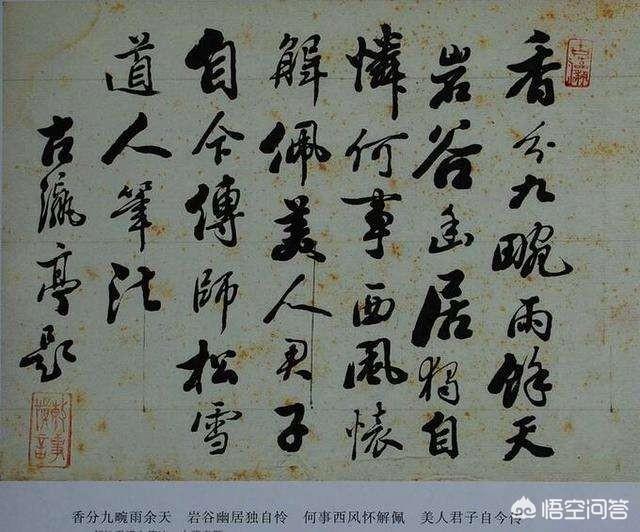 香分九畹雨餘天
岩谷幽居獨自
憐何事西風懷
觧佩美人君子
自今傳師松雪
道人筆法
古瀛亭題
香分九畹雨余天 岩谷幽居独自怜 何事西风怀解佩 美人君子自今传
悟空问答